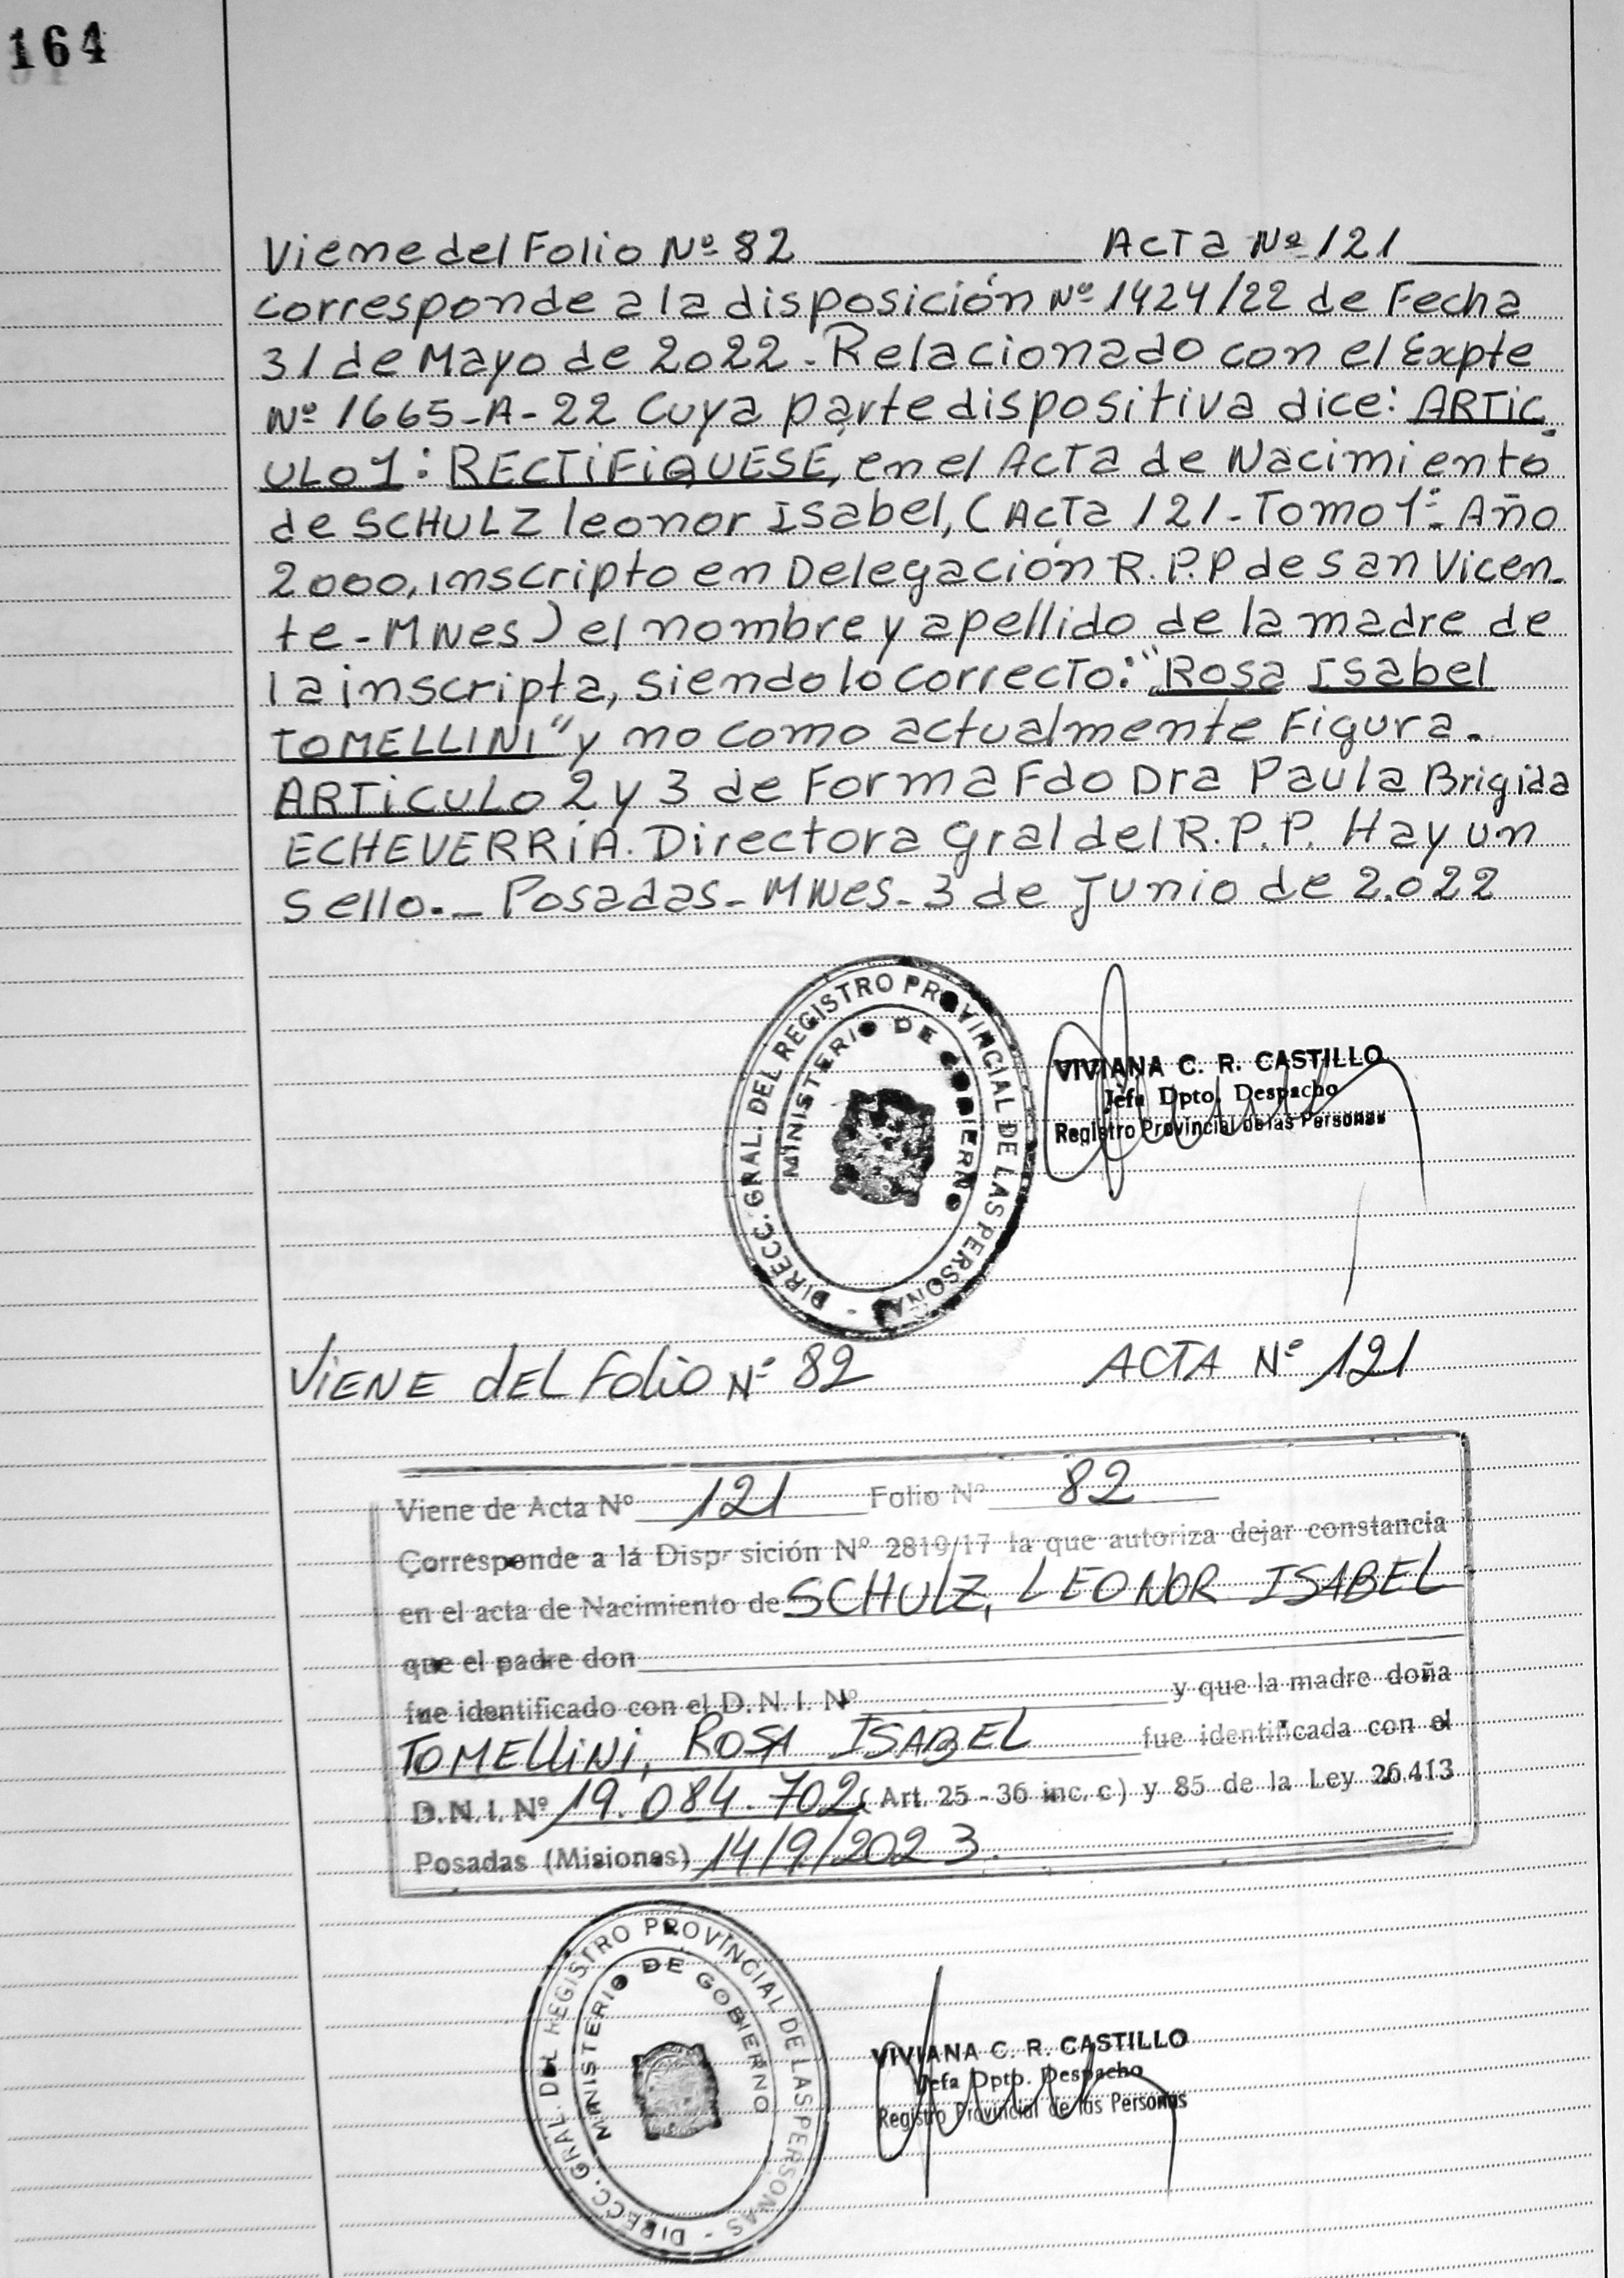 164
Viene del Folio Nº 82 ACTA Nº 121
Corresponde a la disposición Nº 1424/22 de Fecha
31 de Mayo de 2022. Relacionado con el Expte
Nº 1665-A-22 Cuya parte dispositiva dice: ARTIC
ULO 1: RECTIFIQUESE, en el Acta de Nacimiento
de SCHULZ leonor Isabel, (ACTA 121-Tomo 1º Año
2000, inscripto en Delegación R.P.P de San Vicen-
te-MNes) el nombre y apellido de la madre de
la inscripta, siendo lo correcto: "Rosa Isabel
TOMELLINI" y no como actualmente Figura.
ARTICULO 2 y 3 de Forma Fdo Dra Paula Brigida
ECHEVERRÍA. Directora Gral del R.P.P. Hay un
Sello.- Posadas-MNes-3 de Junio de 2.022
DIRECC. GRAL. DEL REGISTRO PROVINCIAL DE LAS PERSONAS -
MINISTERIO DE GOBIERNO
VIVIANA C. R. CASTILLO
Jefa Dpto. Despacho
Registro Provincial de las Personas
VIENE DEL FOLIO Nº 82 ACTA Nº 121
Viene de Acta Nº 121 Folio Nº 82
Corresponde a la Disposición Nº 2819/17 la que autoriza dejar constancia
en el acta de Nacimiento de SCHULZ, LEONOR ISABEL
que el padre don
fue identificado con el D.N.I. Nº y que la madre doña
TOMELLINI, ROSA ISABEL fue identificada con el
D.N.I. Nº 19.084.702 (Art. 25 - 36 inc. c) y 85 de la Ley 26.413
Posadas (Misiones) 14/9/2023.
DIRECC. GRAL. DEL REGISTRO PROVINCIAL DE LAS PERSONAS -
MINISTERIO DE GOBIERNO
VIVIANA C. R. CASTILLO
Jefa Dpto. Despacho
Registro Provincial de las Personas